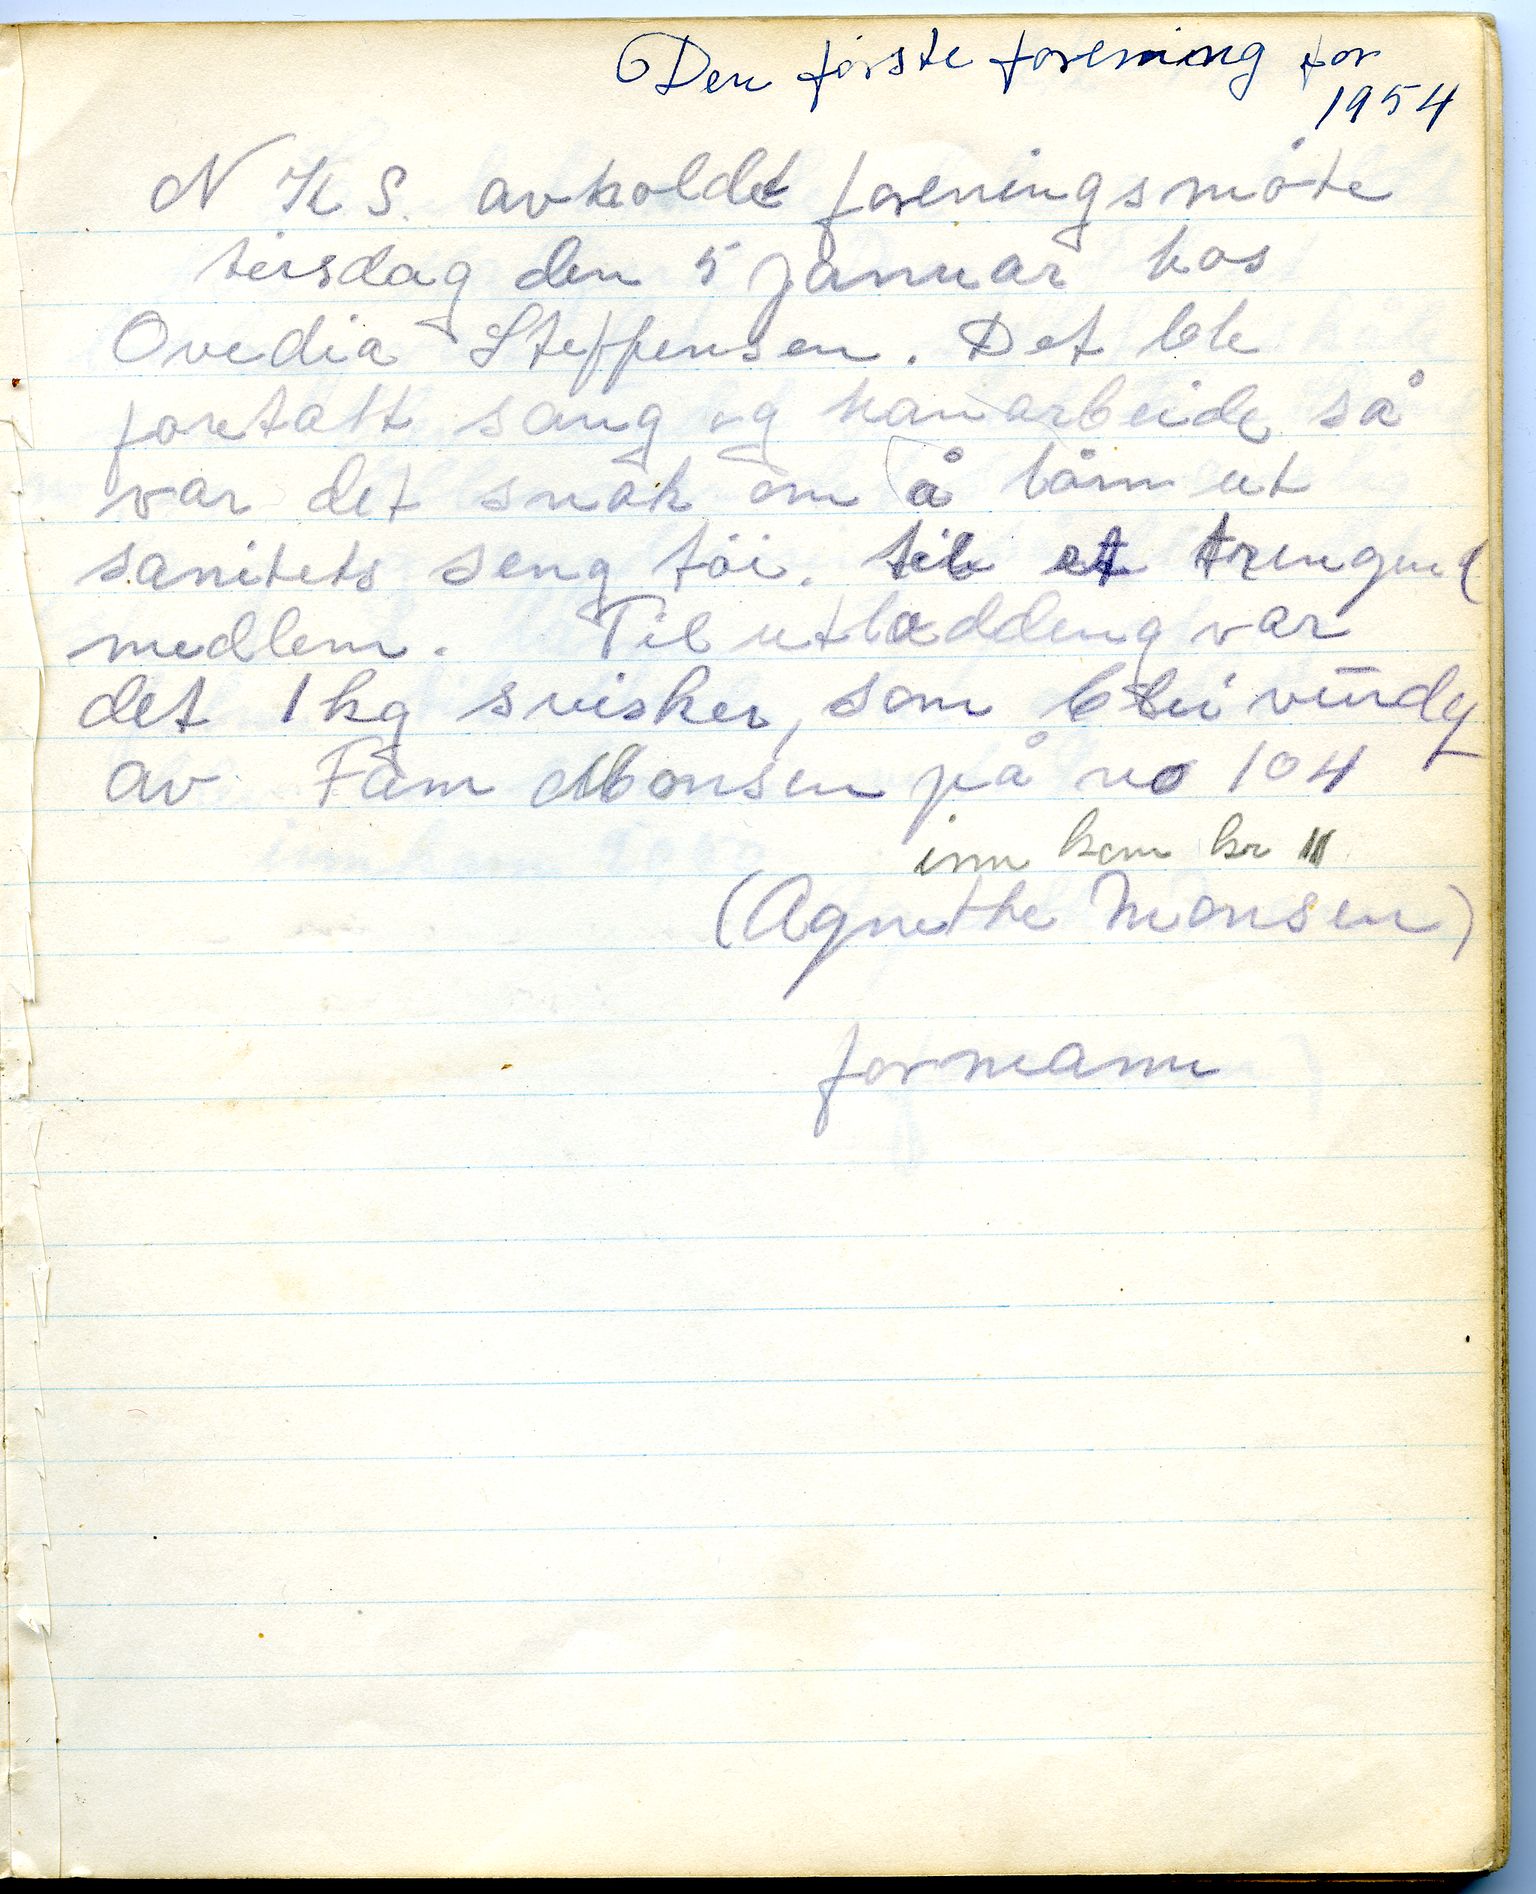 Den første forening for
1954
N K S. avholdt foreningsmöte
tirsdag den 5 januar hos
Ovedia Steffensen. Det ble
foretatt sang og hanarbeide så
var det snak om å lånn ut
sanitets seng töi. til et trengend
medlem. Til utloddeng var
det 1 kg svisker, som blei vundy
av Fam Monsen på no 104
inn kom kr 11
(Agnethe Monsen)
formann